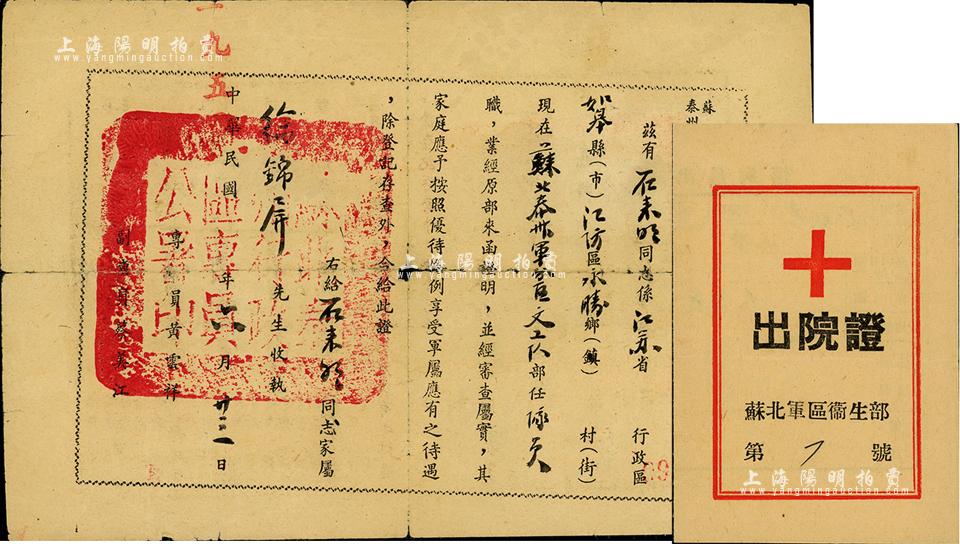 蘇
泰州
茲有石來明同志係江蘇省 行政區
如皋縣（市）江防區永勝鄉（鎮） 村（街）
現在蘇北泰州軍區文工队部任隊員
職，業經原部來函證明，並經審查屬實，其
家庭應予按照優待條例享受軍屬應有之待遇
，除登記存查外，合給此證
右給石來明同志家屬
徐錦屏先生收執
專員黃雲祥
副專員蔡美江
中華民國 年六月廿三日
一九五
出院證
蘇北軍區衞生部
第7號
上海陽明拍賣
www.yangmingauction.com
上海陽明拍賣
www.yangmingauction.com
上海陽明拍賣
www.yangmingauction.com